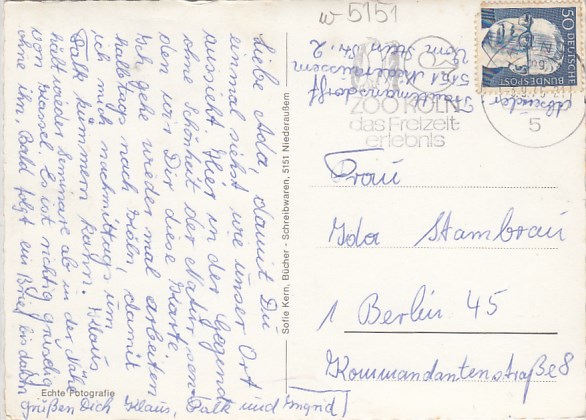 w-5151
Liebe Ada, damit Du
einmal siehst wie unser Ort
aussieht. Hier in der Gegend
ohne Schönheit der Natur sen-
den wir Dir diese Karte.
Ich gehe wieder mal arbeiten
halbtags nach Köln, damit
ich mich nachmittags um
Falk kümmern kann. Klaus
hält wieder Seminare ab in der Nähe
von Kassel. Es ist richtig gruselig
ohne ihn. Bald folgt ein Brief bis dahin
grüßen Dich Klaus, Falk und Ingrid
Echte Fotografie
Sofie Kern, Bücher - Schreibwaren, 5151 Niederaußem
Absender
5151 Niederaussem
Vom Stein Str. 2
ZOO KÖLN
das Freizeit-
erlebnis
5
50 DEUTSCHE
BUNDESPOST
Frau
Ida Stambrau
1 Berlin 45
Kommandantenstraße 8